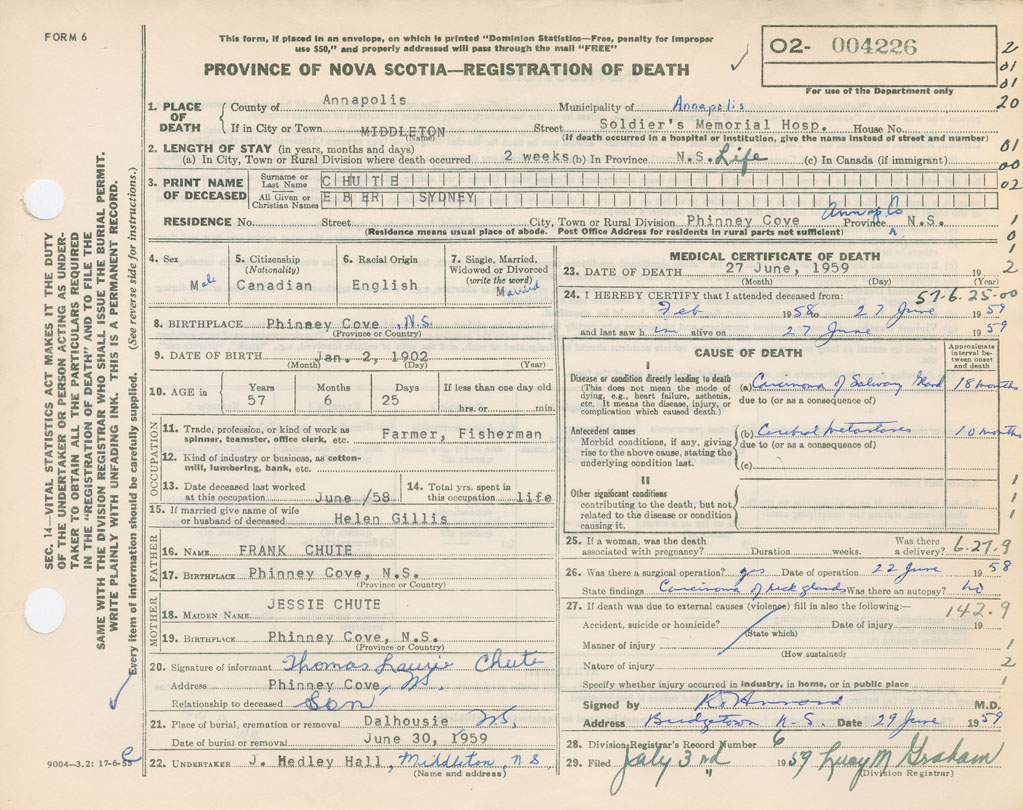 FORM 6
This form, if placed in an envelope, on which is printed "Dominion Statistics—Free, penalty for improper
use $50," and properly addressed will pass through the mail "FREE"
PROVINCE OF NOVA SCOTIA—REGISTRATION OF DEATH
02- 004226
For use of the Department only
2
01
01
20
01
00
02
1
0
1
2
1. PLACE OF DEATH
County of Annapolis Municipality of Annapolis
If in City or Town MIDDLETON Street Soldier's Memorial Hosp. House No.
(Name) (If death occurred in a hospital or institution, give the name instead of street and number)
2. LENGTH OF STAY (in years, months and days)
(a) In City, Town or Rural Division where death occurred 2 weeks (b) In Province N.S. Life (c) In Canada (if immigrant)
3. PRINT NAME OF DECEASED
Surname or Last Name CHUTE
All Given or Christian Names EBER SYDNEY
Annap Co
RESIDENCE No. Street City, Town or Rural Division Phinney Cove Province N.S.
(Residence means usual place of abode. Post Office Address for residents in rural parts not sufficient)
4. Sex
Male
5. Citizenship
(Nationality)
Canadian
6. Racial Origin
English
7. Single, Married,
Widowed or Divorced
(write the word)
Married
8. BIRTHPLACE Phinney Cove, N.S.
(Province or Country)
9. DATE OF BIRTH Jan. 2, 1902
(Month) (Day) (Year)
10. AGE in
Years Months Days If less than one day old
57 6 25 hrs. or min.
OCCUPATION
11. Trade, profession, or kind of work as
spinner, teamster, office clerk, etc. Farmer, Fisherman
12. Kind of industry or business, as cotton-
mill, lumbering, bank, etc.
13. Date deceased last worked
at this occupation June /58
14. Total yrs. spent in
this occupation life
15. If married give name of wife
or husband of deceased Helen Gillis
FATHER
16. NAME FRANK CHUTE
17. BIRTHPLACE Phinney Cove, N.S.
(Province or Country)
MOTHER
18. MAIDEN NAME JESSIE CHUTE
19. BIRTHPLACE Phinney Cove, N.S.
(Province or Country)
20. Signature of informant Thomas Laurie Chute
Address Phinney Cove, NS.
Relationship to deceased Son
21. Place of burial, cremation or removal Dalhousie NS,
Date of burial or removal June 30, 1959
22. UNDERTAKER J. Hedley Hall, Middleton, NS
(Name and address)
MEDICAL CERTIFICATE OF DEATH
23. DATE OF DEATH 27 June, 1959
(Month) (Day) (Year)
24. I HEREBY CERTIFY that I attended deceased from: 57-6-25-00
Feb 1958 to 27 June 1959
and last saw him alive on 27 June 1959
CAUSE OF DEATH
Approximate
interval be-
tween onset
and death
I
Disease or condition directly leading to death
(This does not mean the mode of
dying, e.g., heart failure, asthenia,
etc. It means the disease, injury, or
complication which caused death.)
(a) Carcinoma of Salivary Gland 18 months
due to (or as a consequence of)
Antecedent causes
Morbid conditions, if any, giving
rise to the above cause, stating the
underlying condition last.
(b) Cerebral metastases 10 months
due to (or as a consequence of)
(c)
II
Other significant conditions
contributing to the death, but not
related to the disease or condition
causing it.
1
1
1
25. If a woman, was the death
associated with pregnancy? Duration weeks.
Was there
a delivery? 6-27-9
26. Was there a surgical operation? yes Date of operation 22 June 1958
State findings Carcinoma of neck glands Was there an autopsy? no
27. If death was due to external causes (violence) fill in also the following:—
142.9
Accident, suicide or homicide? Date of injury 19
(State which)
Manner of injury 1
(How sustained)
Nature of injury 2
Specify whether injury occurred in industry, in home, or in public place 1
Signed by M.D.
Address Bridgetown N-S. Date 29 June 1959
28. Division Registrar's Record Number 6
29. Filed July 3rd 1959 Lucy M Graham
(Division Registrar)
SEC. 14—VITAL STATISTICS ACT MAKES IT THE DUTY
OF THE UNDERTAKER OR PERSON ACTING AS UNDER-
TAKER TO OBTAIN ALL THE PARTICULARS REQUIRED
IN THE "REGISTRATION OF DEATH" AND TO FILE THE
SAME WITH THE DIVISION REGISTRAR WHO SHALL ISSUE THE BURIAL PERMIT.
WRITE PLAINLY WITH UNFADING INK. THIS IS A PERMANENT RECORD.
Every item of information should be carefully supplied. (See reverse side for instructions.)
9004-3.2: 17-6-55